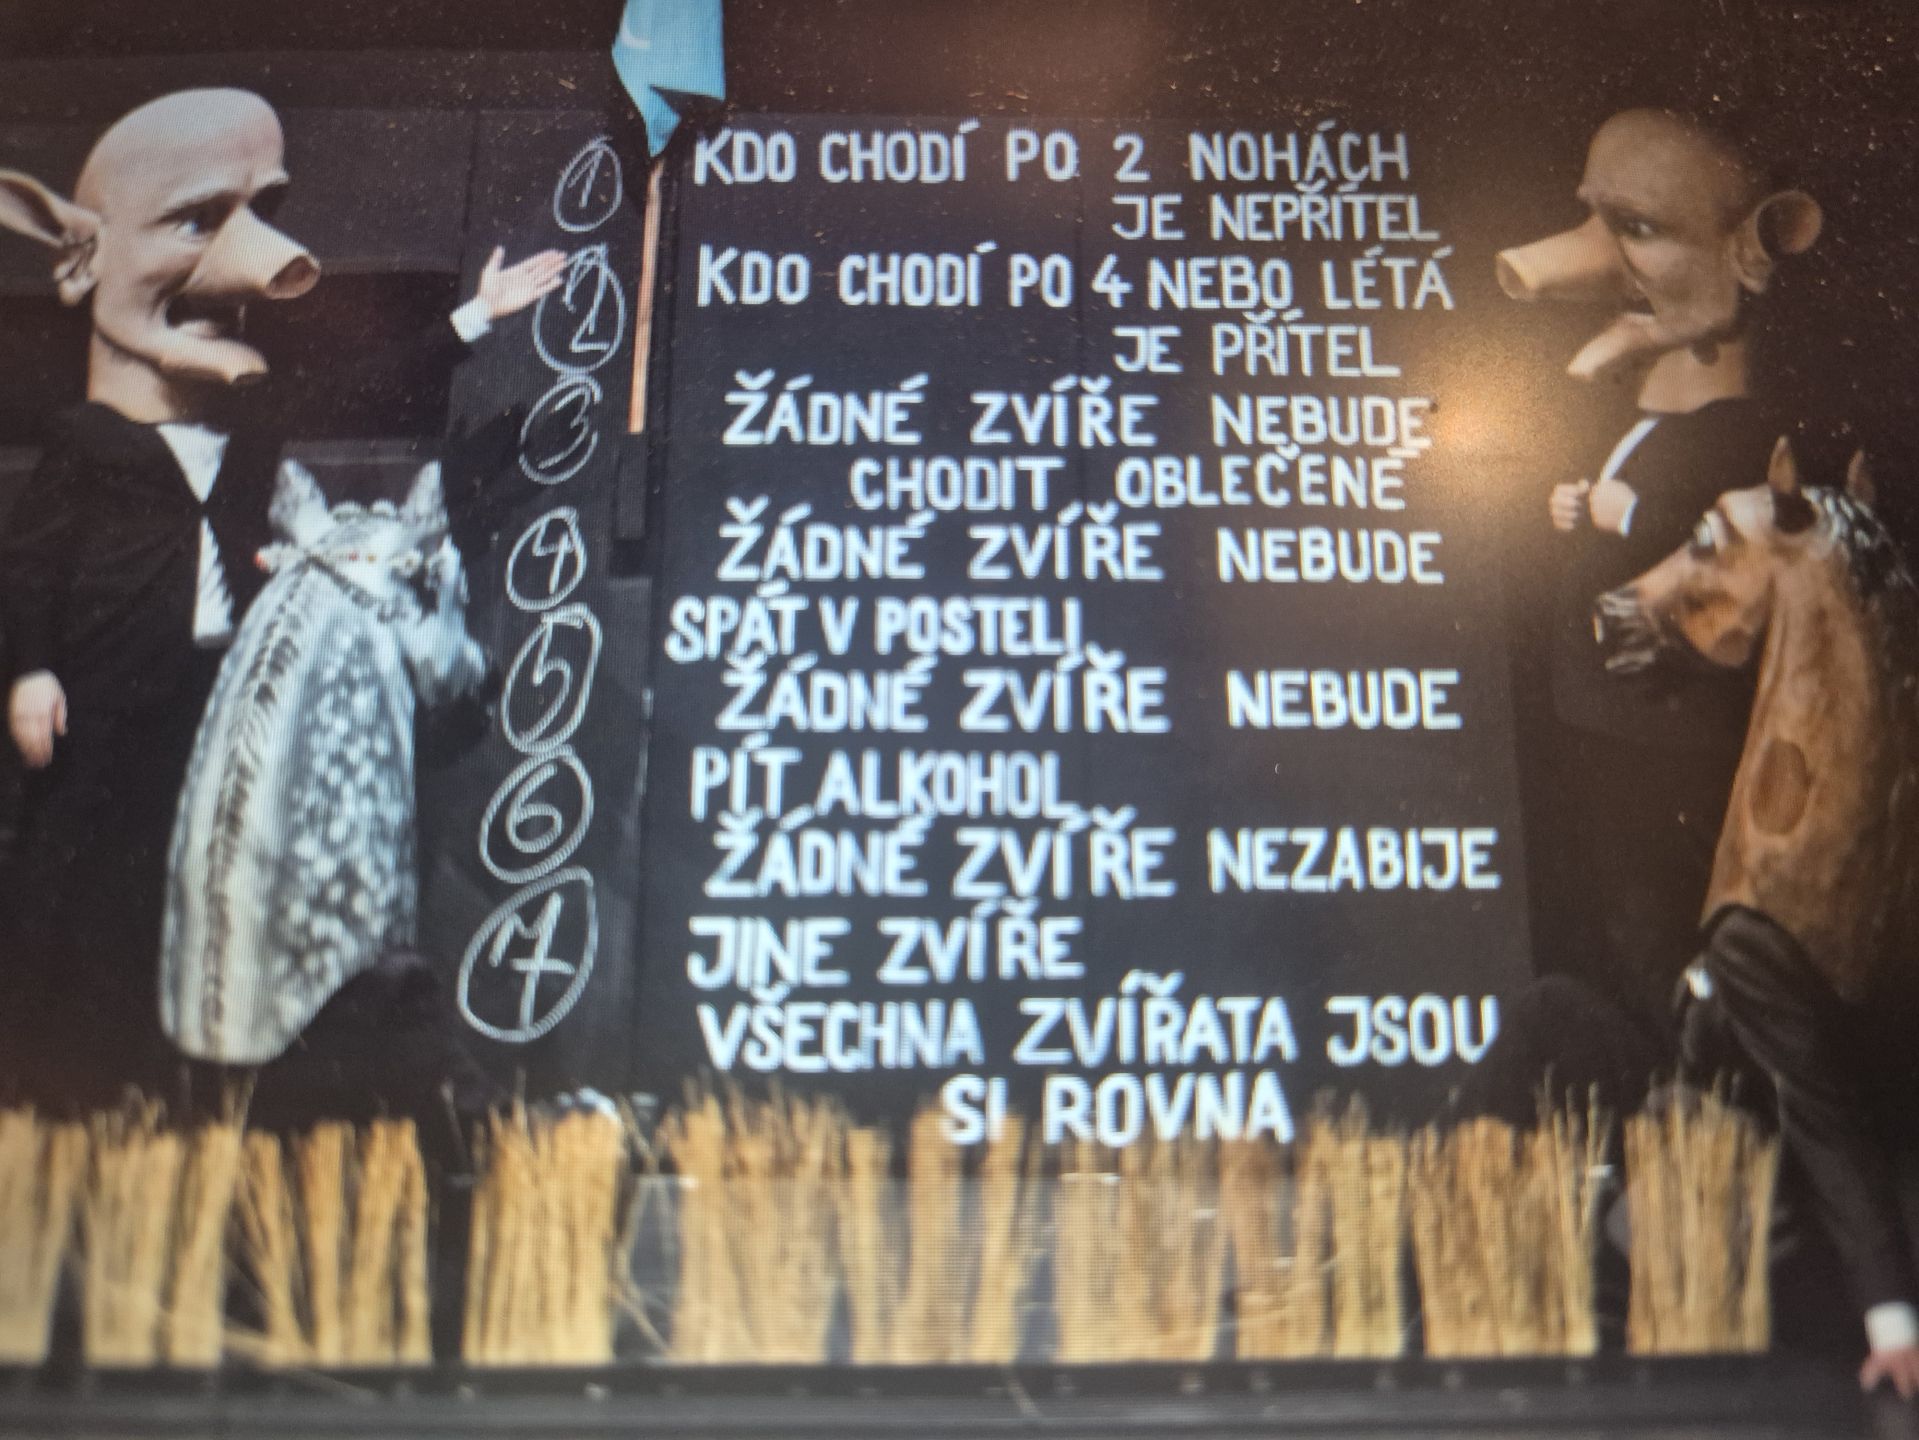 1. KDO CHODÍ PO 2 NOHÁCH
JE NEPŘÍTEL
2 KDO CHODÍ PO 4 NEBO LÉTÁ
JE PŘÍTEL
3 ŽÁDNÉ ZVÍŘE NEBUDE
CHODIT OBLEČENÉ
4 ŽÁDNÉ ZVÍŘE NEBUDE
SPÁT V POSTELI
5 ŽÁDNÉ ZVÍŘE NEBUDE
PÍT ALKOHOL
6 ŽÁDNÉ ZVÍŘE NEZABIJE
JINE ZVÍŘE
7 VŠECHNA ZVÍŘATA JSOU
SI ROVNA